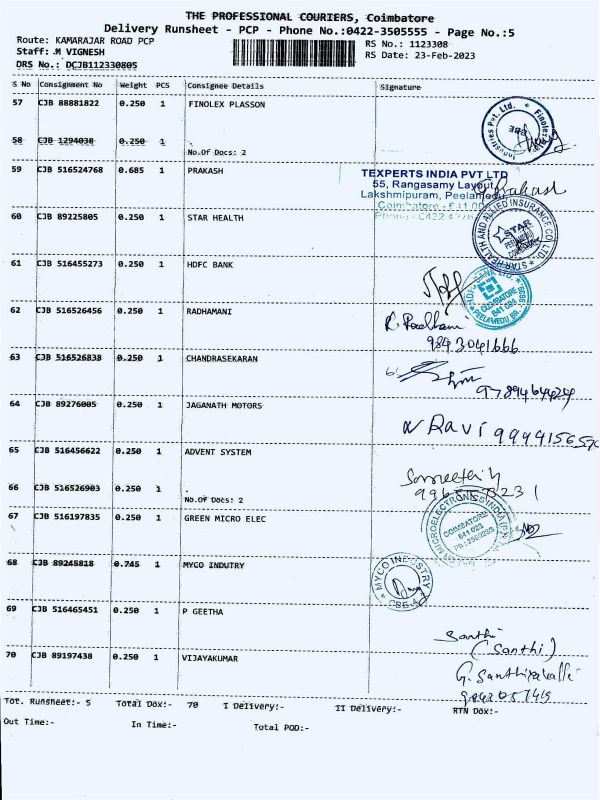 THE PROFESSIONAL COURIERS, Coimbatore
Delivery Runsheet - PCP - Phone No.:0422-3505555 - Page No.:5
Route: KAMARAJAR ROAD PCP
RS No.: 1123308
Staff: M VIGNESH
RS Date: 23-Feb-2023
DRS No.: DCJB112330805
S No Consignment No Weight PCS Consignee Details Signature
57 CJB 88881822 0.250 1 FINOLEX PLASSON
58 CJB 1294038 0.250 1
No.Of Docs: 2
59 CJB 516524768 0.685 1 PRAKASH
TEXPERTS INDIA PVT LTD
55, Rangasamy Layout,
Lakshmipuram, Peelamedu
Prakash
60 CJB 89225805 0.250 1 STAR HEALTH
STAR HEALTH AND ALLIED INSURANCE CO. LTD.
61 CJB 516455273 0.250 1 HDFC BANK
COIMBATORE
641 004
62 CJB 516526456 0.250 1 RADHAMANI
R. Radhami
9843041666
63 CJB 516526838 0.250 1 CHANDRASEKARAN
9789464424
64 CJB 89276005 0.250 1 JAGANATH MOTORS
N Ravi
65 CJB 516456622 0.250 1 ADVENT SYSTEM
66 CJB 516526903 0.250 1
No.Of Docs: 2
67 CJB 516197835 0.250 1 GREEN MICRO ELEC
COIMBATORE
641 023
68 CJB 89245818 0.745 1 MYCO INDUTRY
MYCO INDUSTRY
CBE-4
69 CJB 516465451 0.250 1 P GEETHA
Santhi
(Santhi)
70 CJB 89197438 0.250 1 VIJAYAKUMAR
Tot. Runsheet:- 5 Total Dox:- 70 I Delivery:- II Delivery:- RTN Dox:-
Out Time:- In Time:- Total POD:-